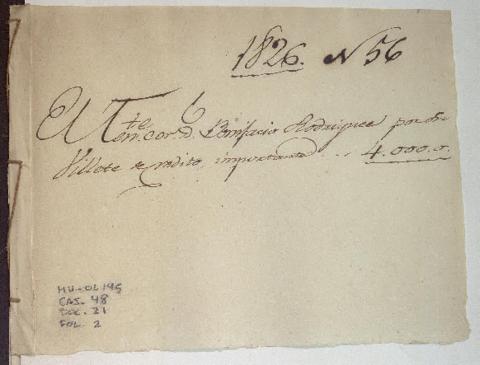 1826. N 56
El Ten.te Cor.l D. Bonifacio Rodriguez por
Villete de credito, importante .. 4.000.
MH-OL195
CAJ. 48
DOC. 21
FOL. 2